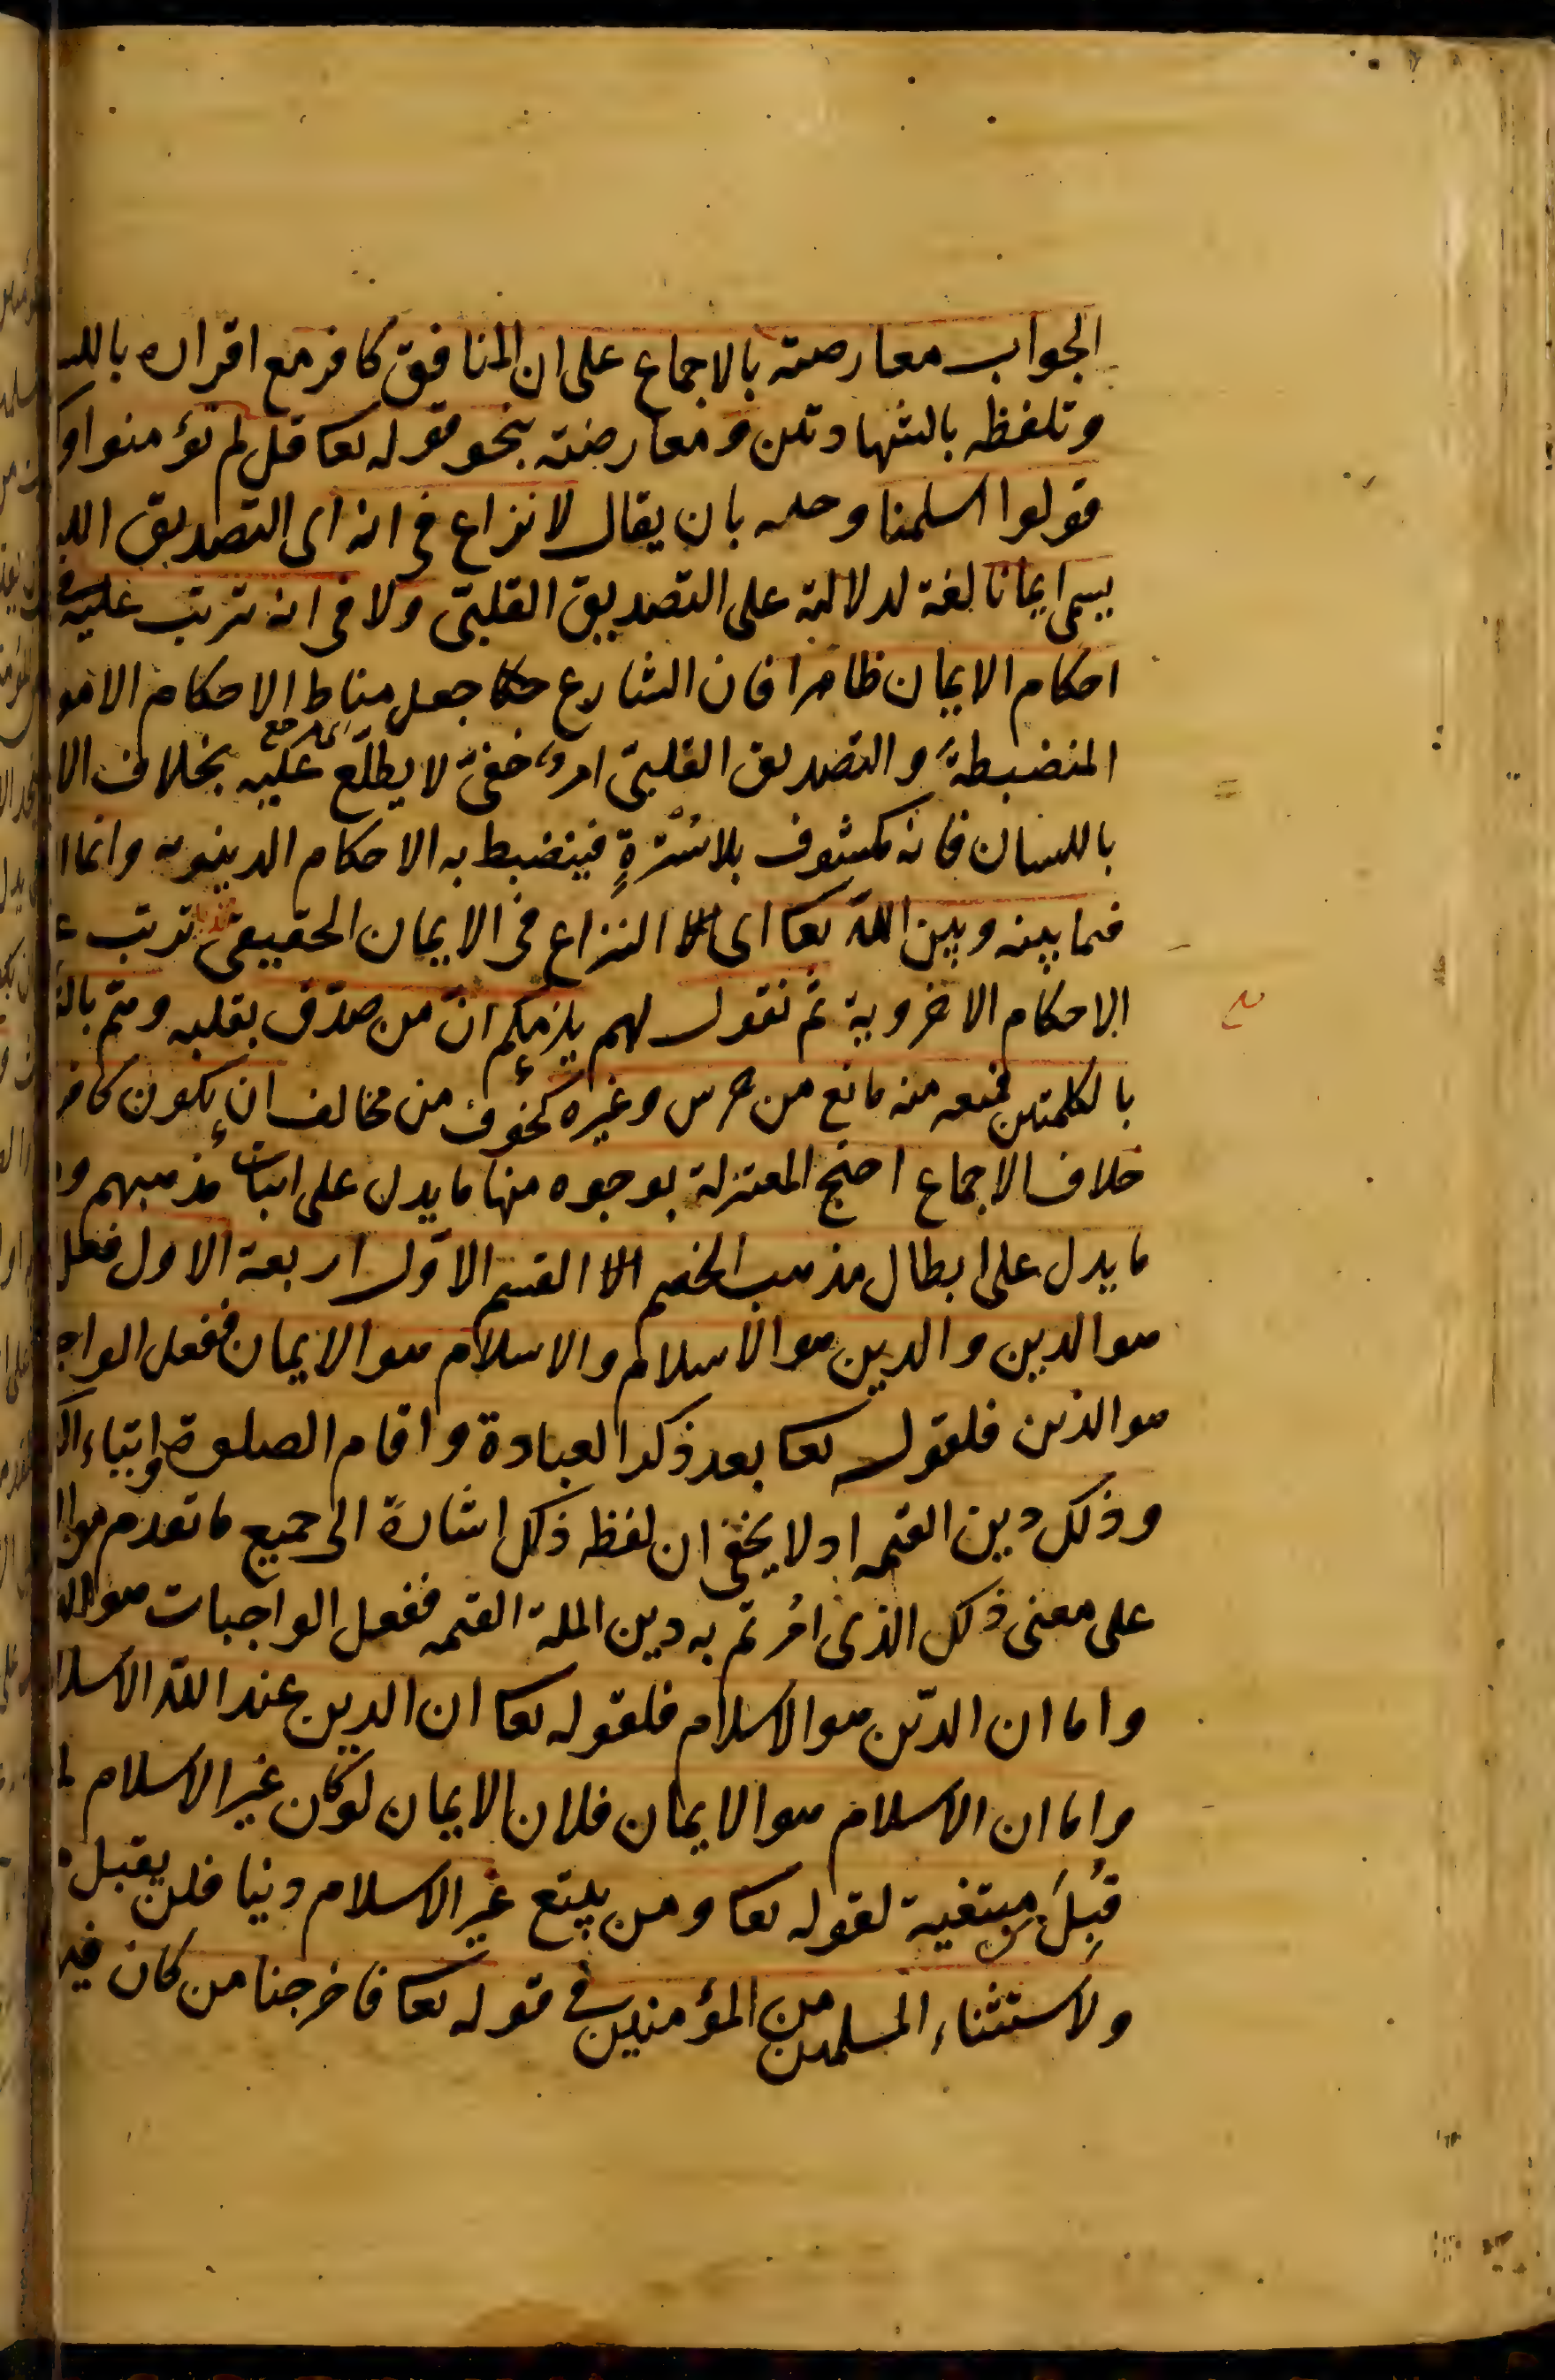 الجواب معارضته بالاجماع على ان المنافق كافر مع اقراره بالل
وتلفظه بالشهادتين ومعارضته بنحو قوله تعا قل لم تؤمنوا و
قولوا اسلمنا وحله بان يقال لا نزاع في انه اى التصديق الل
يسمى ايمانا لغة لدلالته على التصديق القلبىّ ولا في انه يترتب عليه في
احكام الايمان ظاهرا فان الشارع جعل مناط الاحكام الامو
المنضبطة والتصديق القلبىّ امر خفىّ لا يطلّع عليه بخلاف الا
باللسان فانه مكشوف بلا سُتْرةٍ فينضبط به الاحكام الدنيويه وانما ا
فيما بينه وبين الله تعا اى النزاع في الايمان الحقيقى ترتب ع
الاحكام الاخروية ثم نقول لهم يلزمكم انّ من صدّق بقلبه وهمّ بال
بالكلمتين فمنعه منه مانع من خرس وغيره كخوف من مخالف ان يكون كافر
خلاف الاجماع احتج المعتزلة بوجوه منها ما يدل على اثبات مذهبهم و
ما يدل على ابطال مذهب الخصم القسم الاوّل اربعة الاول فعل
هو الدين والدين هو الاسلام والاسلام هو الايمان ففعل الواج
هو الدين فلقوله تعا بعد ذكر العبادة واقام الصلوة وايتاء الز
وذلك دين القيمه اذ لا يخفى ان لفظه ذلك اشارة الى جميع ما تقدم
على معنى ذلك الذى امُرتم به دين الملة القيمه ففعل الواجبات هو
واما ان الدّين هو الاسلام فلقوله تعا ان الدين عند الله الاسلا
واما ان الاسلام هو الايمان فلان الايمان لو كان غير الاسلام لم
قُبِلَ من مبتغيه لقوله تعا ومن يبتغ غير الاسلام دينا فلن يقبل
ولاستثناء المسلمين من المؤمنين في قوله تعا فاخرجنا من كان فيه